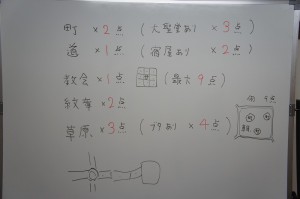 町 ×2点 (大聖堂あり ×3点)
道 ×1点 (宿屋あり ×2点)
教会 ×1点 (最大 9点)
紋章 ×2点
草原 ×3点 (ブタあり ×4点)
例 9点